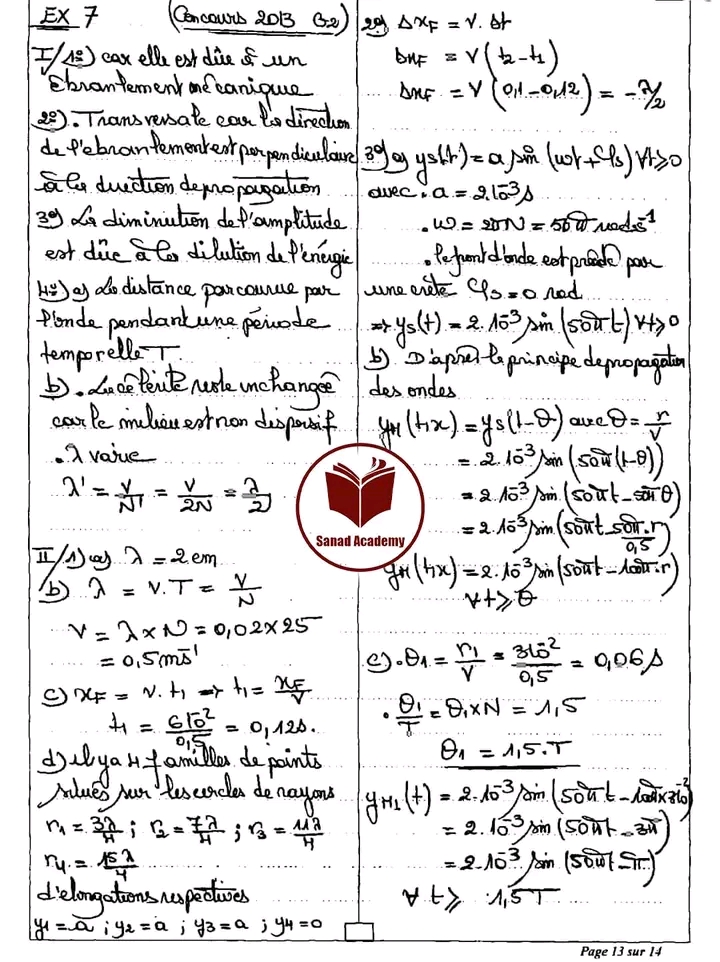 EX 7 (Concours 2013 G2)
I/ 1°) car elle est dûe à un
ébranlement mécanique
2°). Transversale car la direction
de l'ebranlement est perpendiculaire
à la direction de propagation
3°) La diminution de l'amplitude
est dûe à la dilution de l'énérgie
4°) a) La distance parcourue par
l'onde pendant une période
temporelle T
b). La célérité reste inchangée
car le milieu est non dispersif
. λ varie
λ' = V/N' = V/2N = λ/2
II/ 1) a) λ = 2 cm
b) λ = V.T = V/N
V = λ x N = 0,02 x 25
= 0,5 ms⁻¹
c) xF = v.t1 → t1 = xF/V
t1 = 6 10⁻²/0,5 = 0,12 s.
d) il y a 4 familles de points
situés sur les cercles de rayons
r1 = 3λ/4 ; r2 = 7λ/4 ; r3 = 11λ/4
r4 = 15λ/4
d'elongations respectives
y1 = a ; y2 = a ; y3 = a ; y4 = 0
2°) ΔxF = V.Δt
ΔxF = V(t2 - t1)
ΔxF = V(0,1 - 0,12) = -λ/2
3°) a) ys(t) = a sin (wt + φs) ∀t ≥ 0
avec . a = 2.10⁻³
. w = 2πN = 50π rad.s⁻¹
. le front d'onde est précédé par
une crête φs = 0 rad
⇒ ys(t) = 2.10⁻³ sin (50π t) ∀t ≥ 0
b) D'après le principe de propagation
des ondes
yM(t,x) = ys(t - θ) avec θ = r/V
= 2.10⁻³ sin (50π (t - θ))
= 2.10⁻³ sin (50π t - 50π θ)
= 2.10⁻³ sin (50π t - 50π.r/0,5)
yM(t,x) = 2.10⁻³ sin (50π t - 100π.r)
∀ t ≥ θ
c). θ1 = r1/V = 3 10⁻²/0,5 = 0,06 s
. θ1/T = θ1 x N = 1,5
θ1 = 1,5.T
yM1(t) = 2.10⁻³ sin (50π t - 100π x 3 10⁻²)
= 2.10⁻³ sin (50π t - 3π)
= 2.10⁻³ sin (50π t - π)
∀ t ≥ 1,5 T
Sanad Academy
Page 13 sur 14